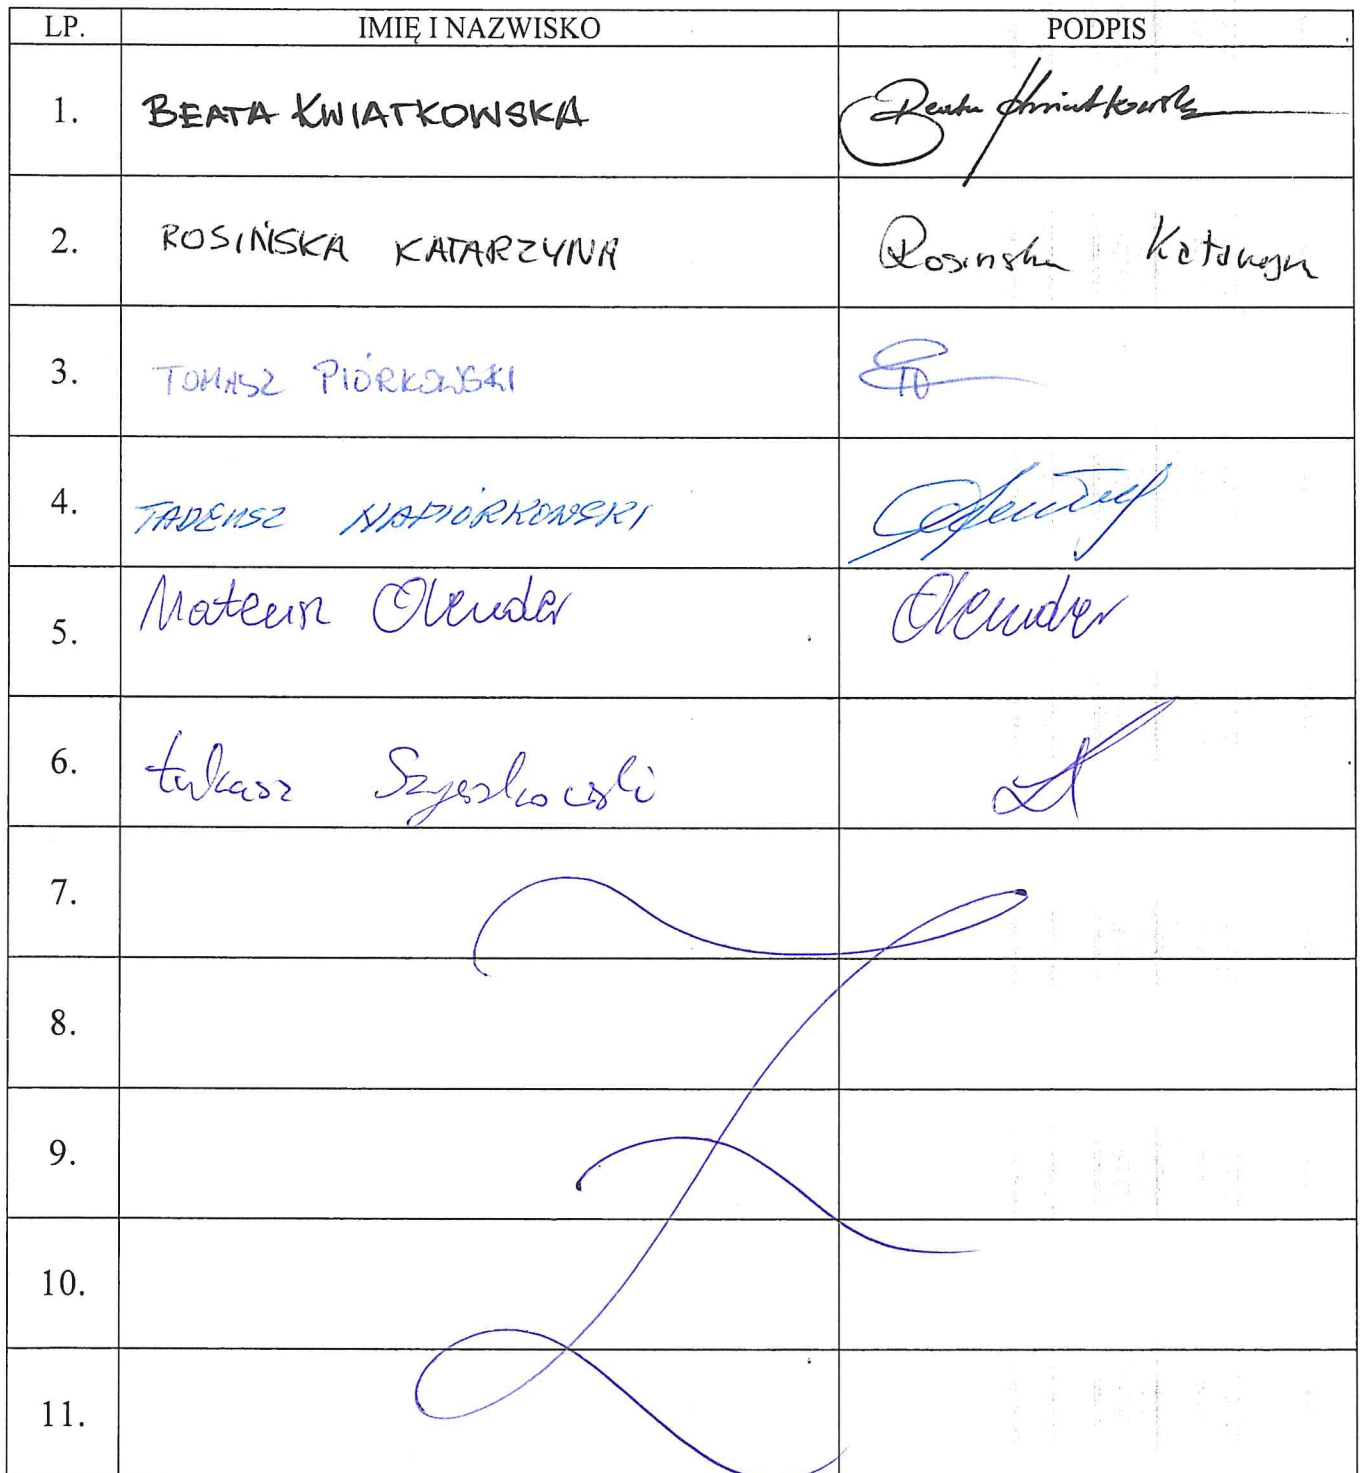 LP. IMIĘ I NAZWISKO PODPIS
1. BEATA KWIATKOWSKA Beata Kwiatkowska
2. ROSIŃSKA KATARZYNA Rosińska Katarzyna
3. TOMASZ PIÓRKOWSKI
4. TADEUSZ NAPIÓRKOWSKI
5. Mateusz Olender Olender
6. Łukasz
7.
8.
9.
10.
11.